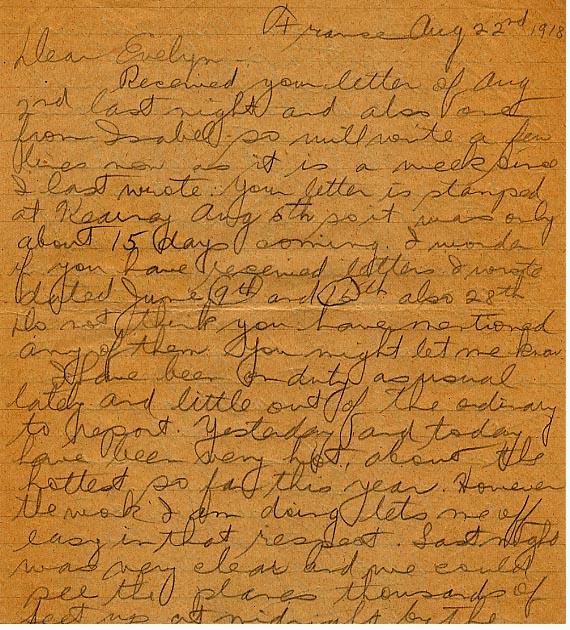 France Aug 22nd 1918
Dear Evelyn
Received your letter of Aug
2nd last night and also one
from Isabel so will write a few
lines now as it is a week since
I last wrote. Your letter is stamped
at Kearney Aug 5th so it was only
about 15 days coming. I wonder
if you have received letters I wrote
dated June 9th and 15th also 28th
Do not think you have mentioned
any of them. You might let me know.
I have been on duty as usual
later and little out of the ordinary
to report. Yesterday and today
have been very hot, about the
hottest so far this year. However
the work I am doing lets me off
easy in that respect. Last night
was very clear and we could
see the planes thousands of
feet up at midnight by the